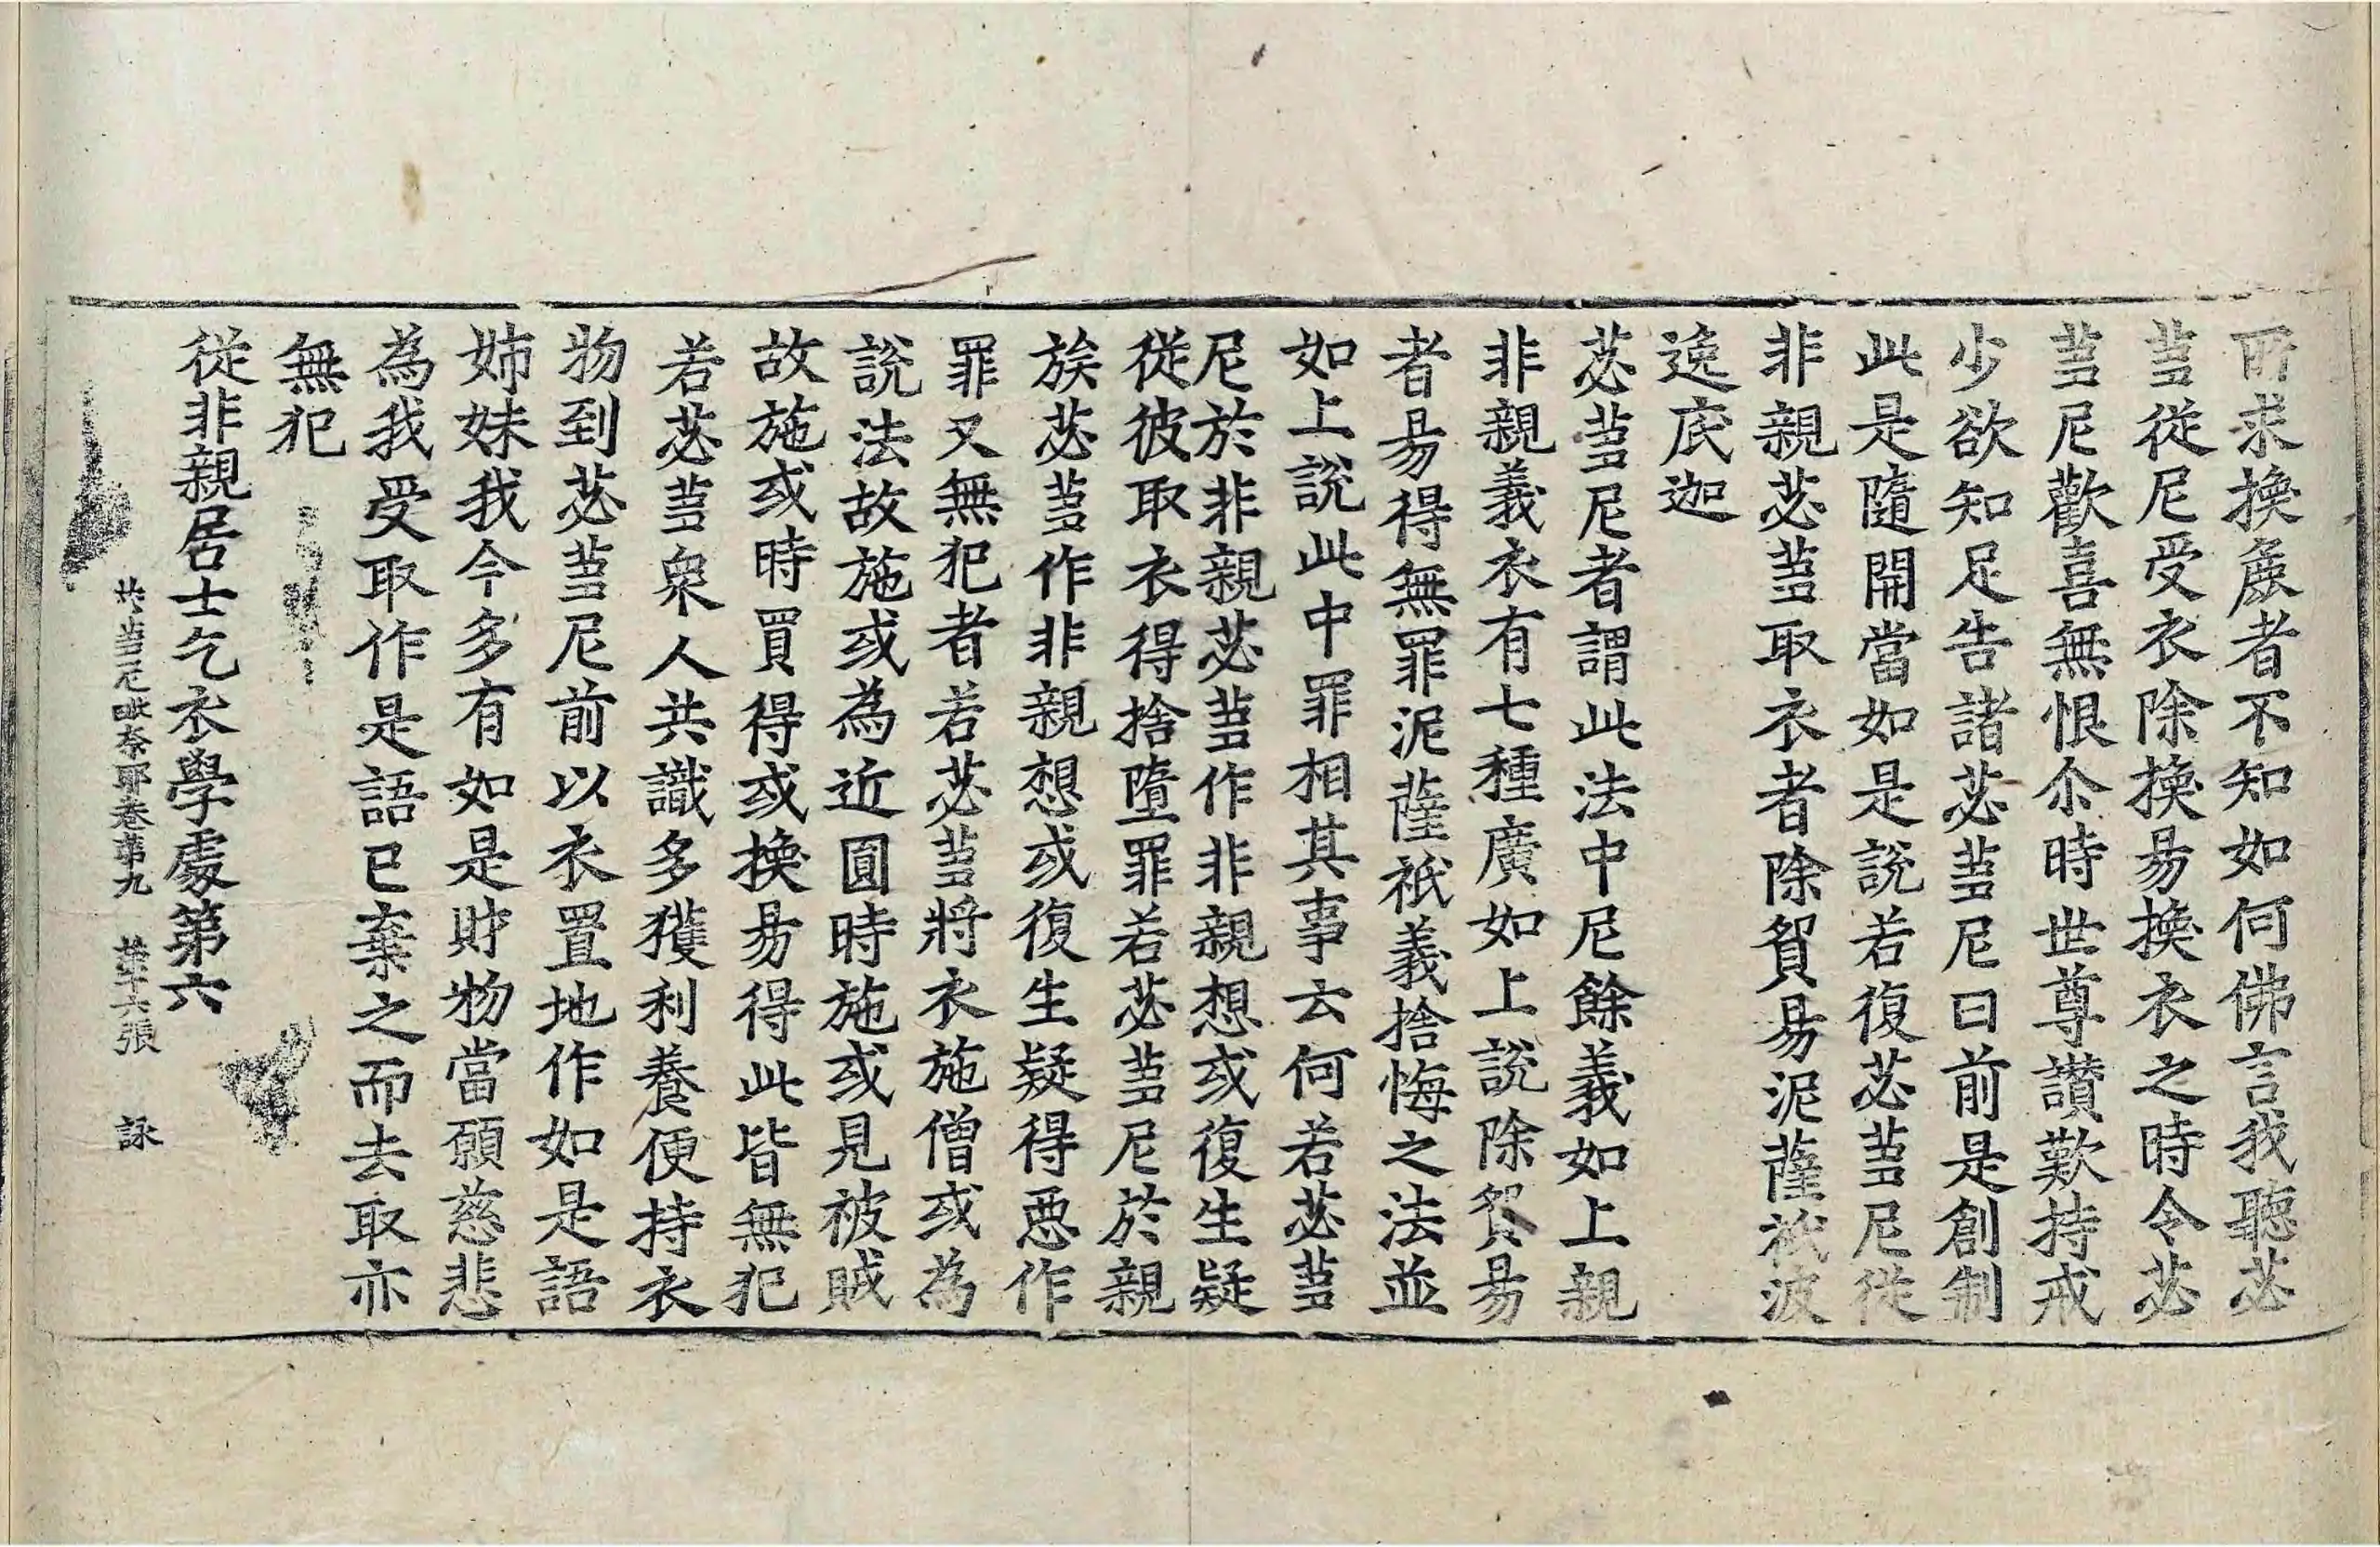 所求換處者不知如何佛言我聽苾
蒭從尼受衣除換易換衣之時令苾
蒭尼歡喜無恨尒時世尊讃歎持戒
少欲知足告諸苾蒭尼曰前是創制
此是隨開當如是說若復苾蒭尼從
非親苾蒭取衣者除貿易泥薩祇波
逸底迦
苾蒭尼者謂此法中尼餘義如上親
非親義衣有七種廣如上說除貿易
者易得無罪泥薩祇義捨悔之法並
如上說此中罪相其事云何若苾蒭
尼於非親苾蒭作非親想或復生疑
從彼取衣得捨墮罪若苾蒭尼於親
族苾蒭作非親想或復生疑得惡作
罪又無犯者若苾蒭將衣施僧或為
說法故施或為近圓時施或見被賊
故施或時買得或換易得此皆無犯
若苾蒭衆人共識多獲利養便持衣
物到苾蒭尼前以衣置地作如是語
姉妹我今多有如是財物當願慈悲
為我受取作是語已棄之而去取亦
無犯
從非親居士乞衣學處第六
苾蒭尼毗奈耶卷第九 第十六張 詠